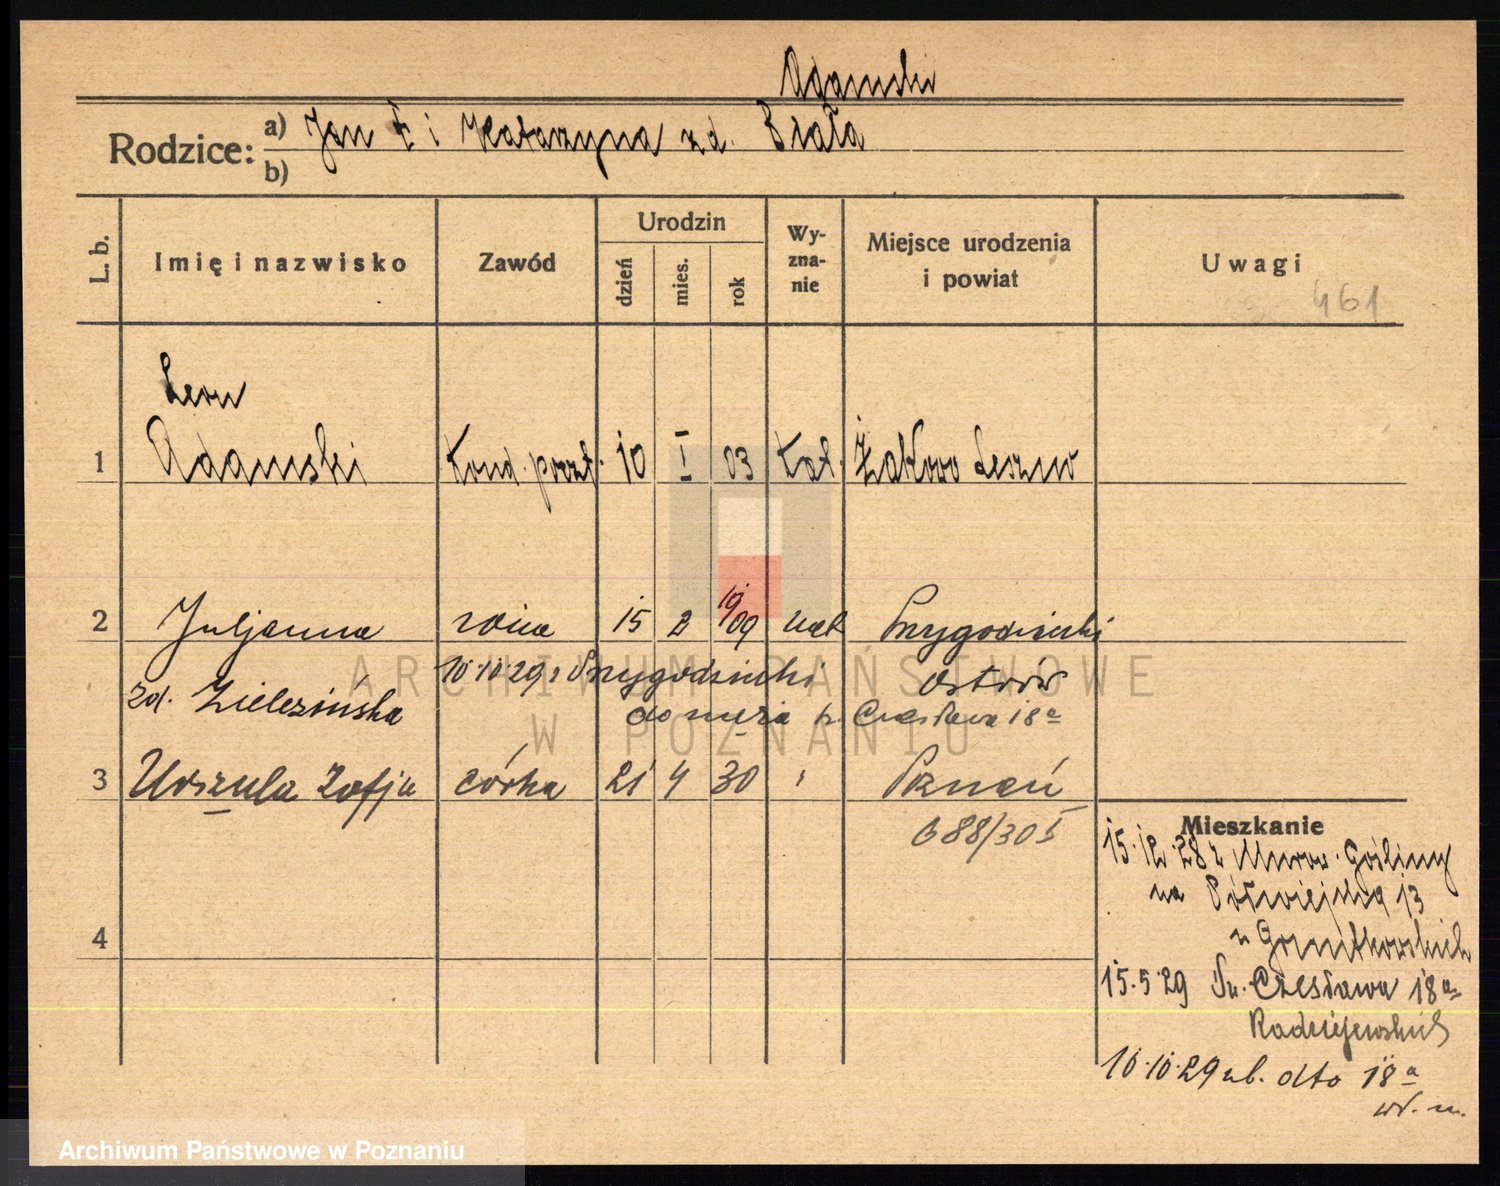 Adamski
Rodzice: a) Jan † i Katarzyna zd. Biała
b)
L. b. Imię i nazwisko Zawód Urodzin dzień mies. rok Wy-zna-nie Miejsce urodzenia i powiat Uwagi
461
Leon
1 Adamski kond. poczt. 10 I 03 kat. Żakowo Leszno
2 Juljanna żona 15 2 1909 kat Przygodziczki
10.10.29 z Przygodziczki Ostrów
zd. Zielezińska do męża Czesława 18a
3 Urszula Zofja córka 21 4 30 Poznań
688/30 I
Mieszkanie
15.12.28 z Murow. Gośliny
na Półwiejska 13
u
15.5.29 Św. Czesława 18a
Radziejewskich
4
10.10.29 dto 18a
wł. m.
ARCHIWUM PAŃSTWOWE
W POZNANIU
Archiwum Państwowe w Poznaniu